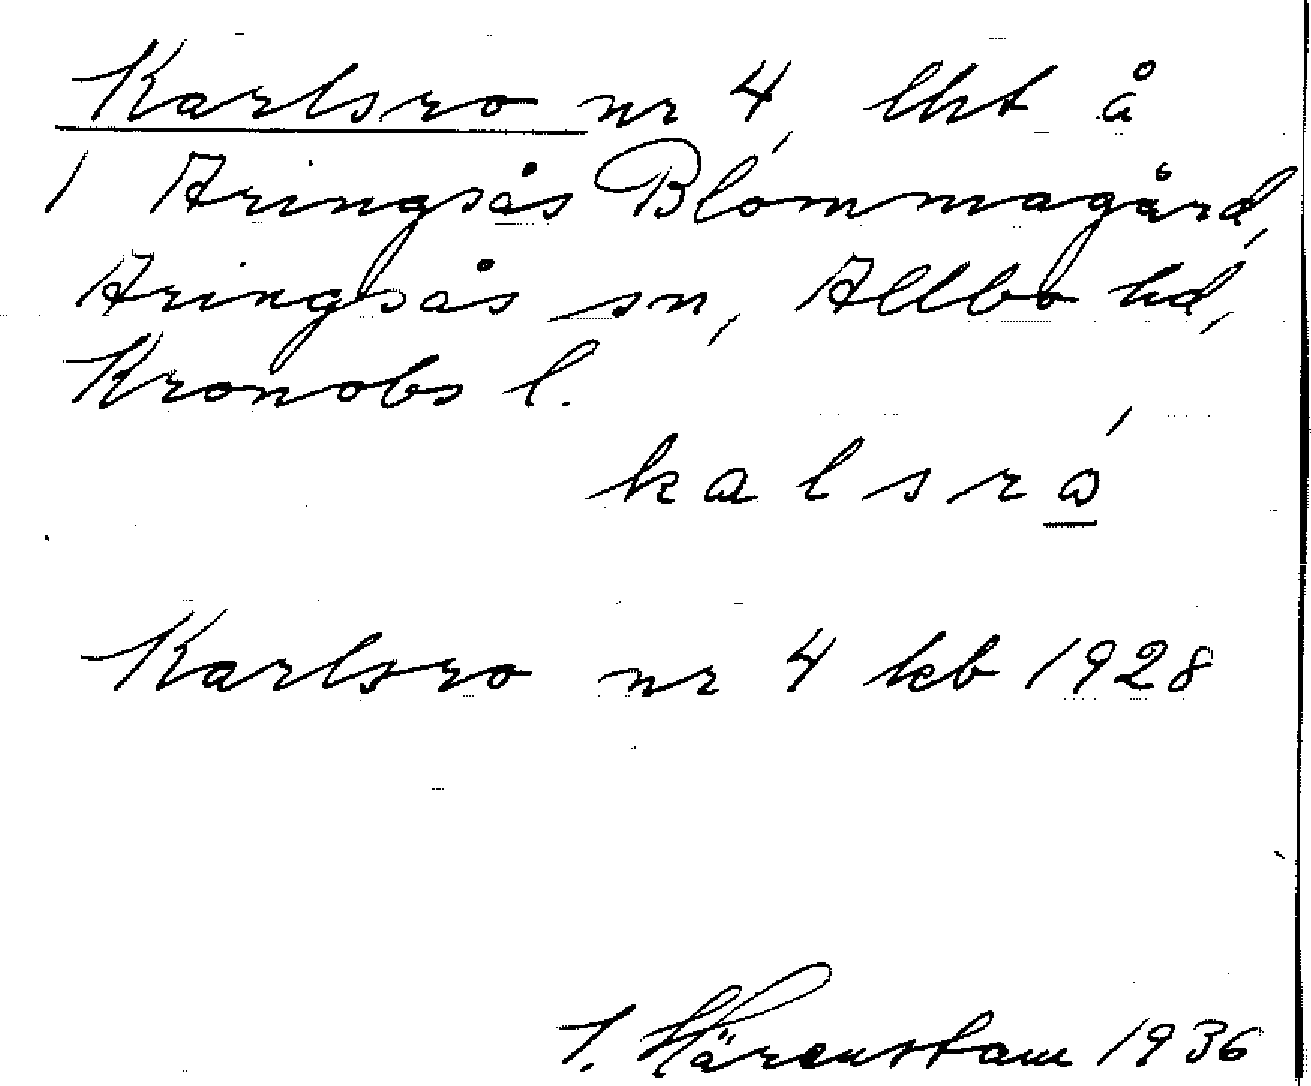 Karlsro nr 4, lht å
1 Aringsås Blommagård,
Aringsås sn, Allbo hd,
Kronobs l.
kalsró
Karlsro nr 4 kb 1928
Härenstam 1936